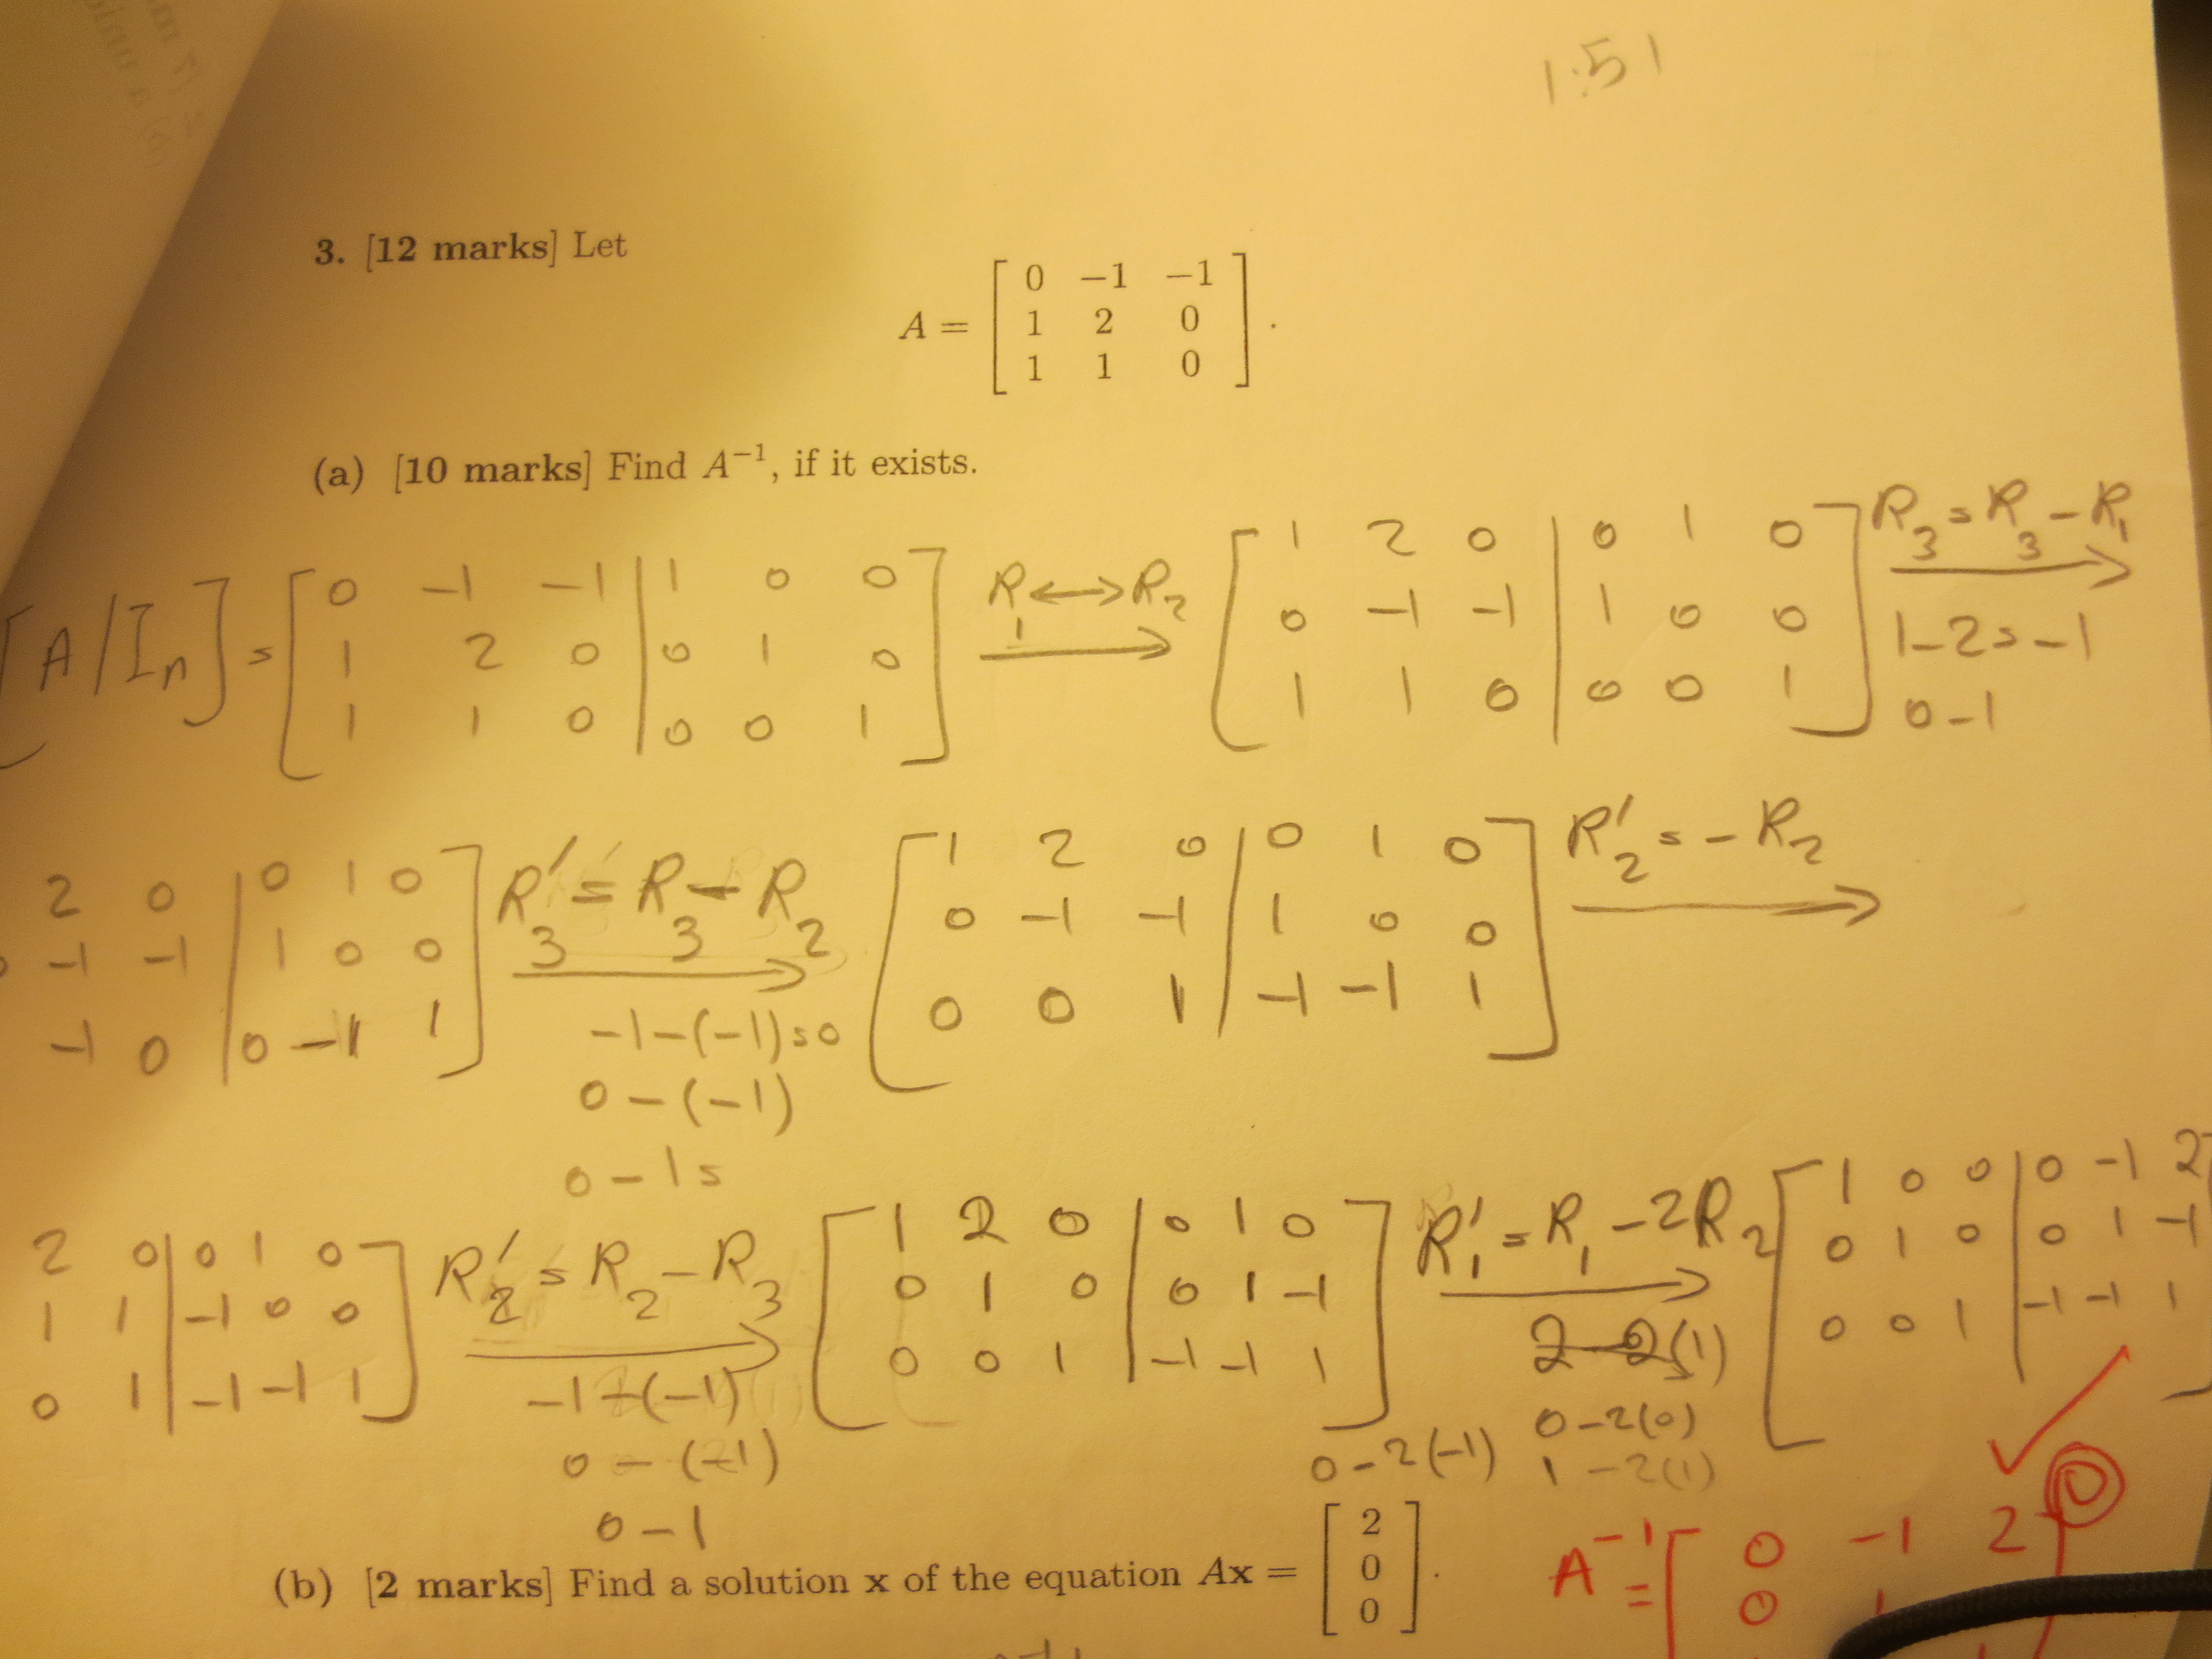 1:51
3. [12 marks] Let
A = [ 0 −1 −1
1 2 0
1 1 0 ] .
(a) [10 marks] Find A⁻¹, if it exists.
[A/Iₙ] = [ 0 −1 −1 | 1 0 0
1 2 0 | 0 1 0
1 1 0 | 0 0 1 ]
R₁ ↔ R₂
[ 1 2 0 | 0 1 0
0 −1 −1 | 1 0 0
1 1 0 | 0 0 1 ]
R₃ = R₃ − R₁
1−2 = −1
0−1
2 0 | 0 1 0
0 −1 −1 | 1 0 0
−1 0 | 0 −1 1 ]
R₃′ = R₃ − R₂
−1−(−1) = 0
0−(−1)
0−1 =
[ 1 2 0 | 0 1 0
0 −1 −1 | 1 0 0
0 0 1 | −1 −1 1 ]
R₂′ = −R₂
2 0 | 0 1 0
1 1 | −1 0 0
0 1 | −1 −1 1 ]
R₂′ = R₂ − R₃
−1−(−1)
0−(−1)
0−1
[ 1 2 0 | 0 1 0
0 1 0 | 0 1 −1
0 0 1 | −1 −1 1 ]
R₁′ = R₁ − 2R₂
2−2(1)
0−2(0)
0−2(−1) 1−2(1)
[ 1 0 0 | 0 −1 2
0 1 0 | 0 1 −1
0 0 1 | −1 −1 1 ]
(b) [2 marks] Find a solution x of the equation Ax = [ 2
0
0 ] .
A⁻¹ = [ 0 −1 2
0